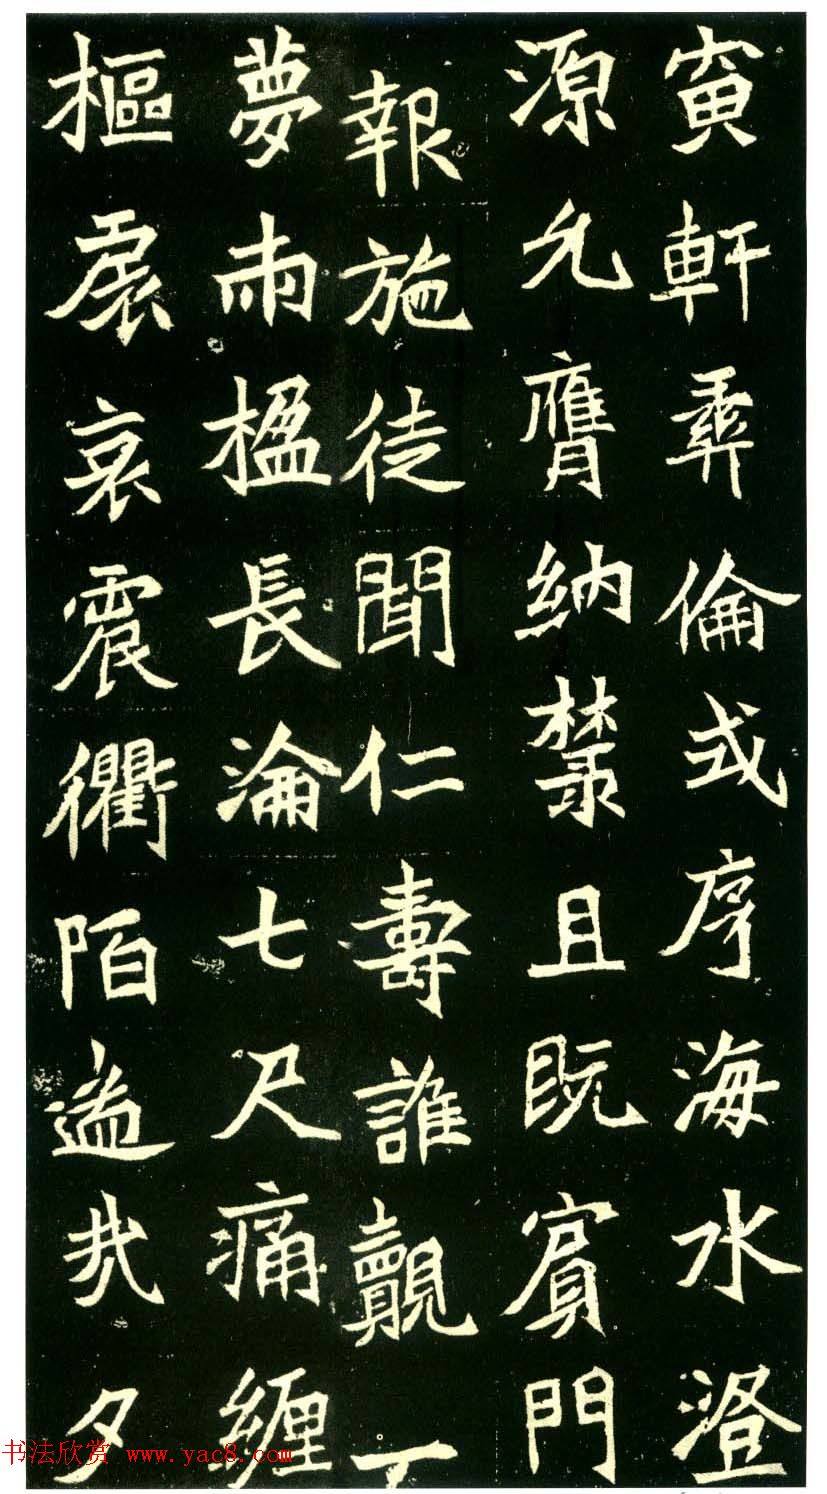 寅軒彝倫式序海水澄
源允膺納麓且既賓門
報施徒聞仁壽誰覿一
夢兩楹長淪七尺痛纏
樞扆哀震衢陌哉夕
书法欣赏 www.yac8.com